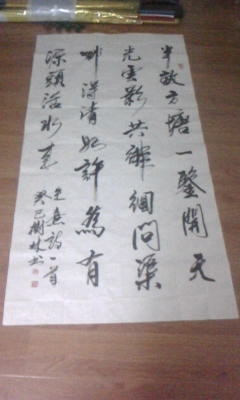 半畝方塘一鑒開天
光雲影共徘徊問渠
那得清如許為有
源頭活水來
朱熹詩一首
癸巳樹林書